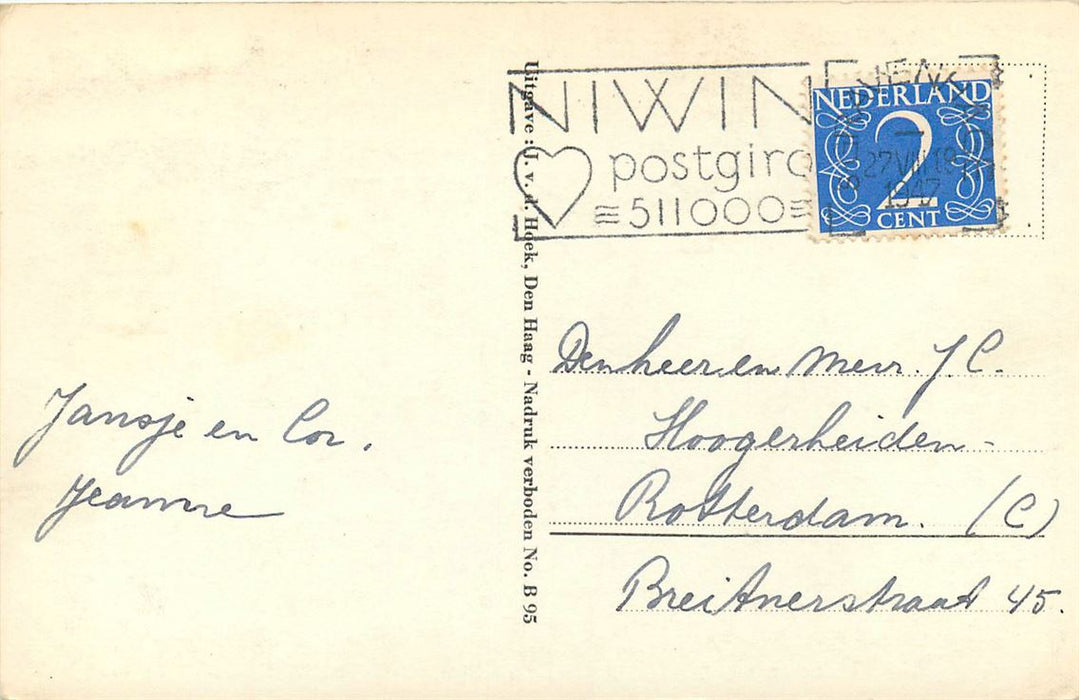 NIWIN
postgiro
511000
NEDERLAND
27 VIII
1947
2
CENT
Uitgave : J. v. d. Hoek, Den Haag - Nadruk verboden No. B 95
Jansje en Cor.
Jeanne
Den heer en Mevr. J. C.
Hoogerheiden-
Rotterdam. (C)
Breitnerstraat 45.